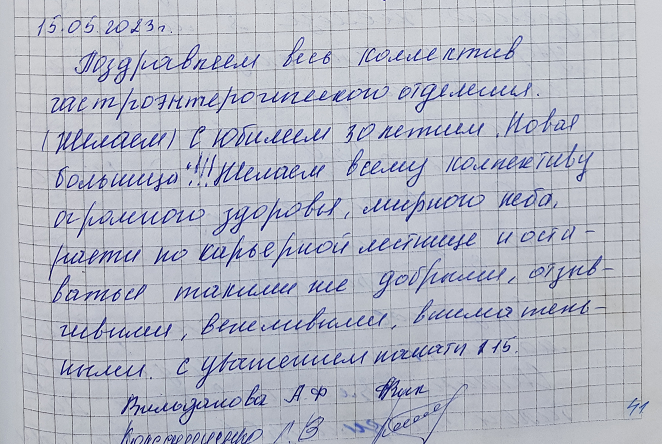 15.05.2023г.
Поздравляем весь коллектив
гастроэнтерологического отделения.
(Желаем) с юбилеем 30летием "Новая
больница"!!! Желаем всему коллективу
огромного здоровья, мирного неба,
расти по карьерной лестнице и оста-
ваться такими же добрыми, отзыв-
чивыми, вежливыми, вниматель-
ными. С уважением палаты 115.
Вильданова А.Ф
Г. В
41